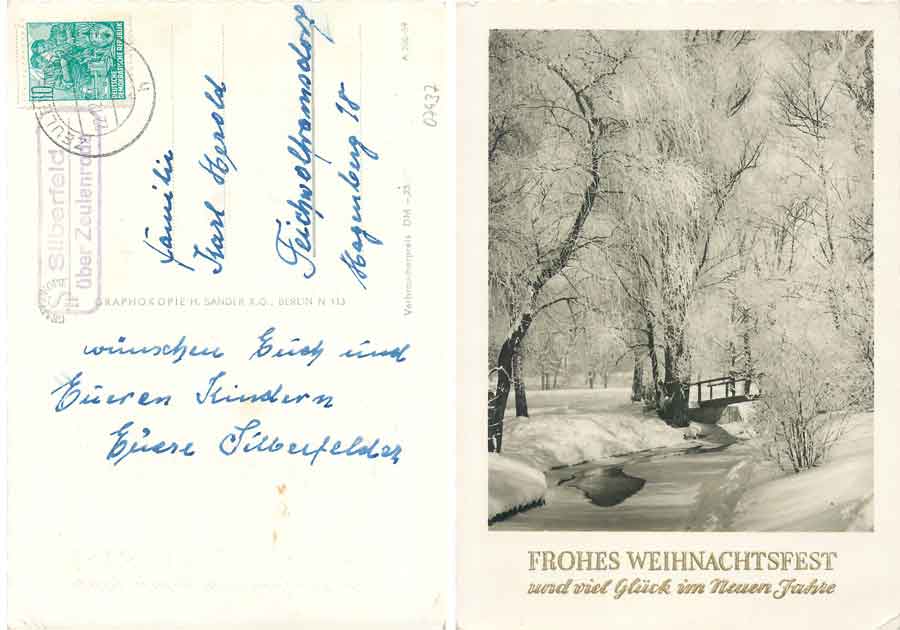 DEUTSCHE
DEMOKRATISCHE REPUBLIK
10
ZEULE
Silberfeld
über Zeulenroda
A 206/59
07937
Familie
Karl Herold
Teichwolframsdorf
Hagenberg 18
Verbraucherpreis DM -,25
GRAPHOKOPIE H. SANDER K.G., BERLIN N 113
wünschen Euch und
Eueren Kindern
Euere Silberfelder
FROHES WEIHNACHTSFEST
und viel Glück im Neuen Jahre